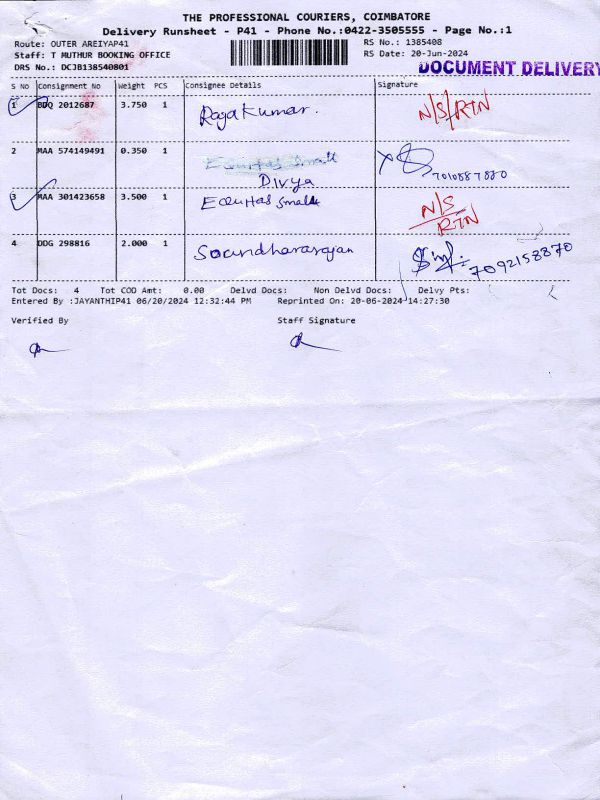 THE PROFESSIONAL COURIERS, COIMBATORE
Delivery Runsheet - P41 - Phone No.:0422-3505555 - Page No.:1
Route: OUTER AREIYAP41
RS No.: 1385408
Staff: T MUTHUR BOOKING OFFICE
RS Date: 20-Jun-2024
DRS No.: DCJB138540801
DOCUMENT DELIVERY
S No Consignment No Weight PCS Consignee Details Signature
1 BDQ 2012687 3.750 1 Rajakumar. N/S/RTN
2 MAA 574149491 0.350 1 Equitas Small
Divya
7010887880
3 MAA 301423658 3.500 1 Equitas Small N/S
RTN
4 DDG 298816 2.000 1 Soundhararajan 7092158870
Tot Docs: 4 Tot COD Amt: 0.00 Delvd Docs: Non Delvd Docs: Delvy Pts:
Entered By :JAYANTHIP41 06/20/2024 12:32:44 PM Reprinted On: 20-06-2024 14:27:30
Verified By Staff Signature